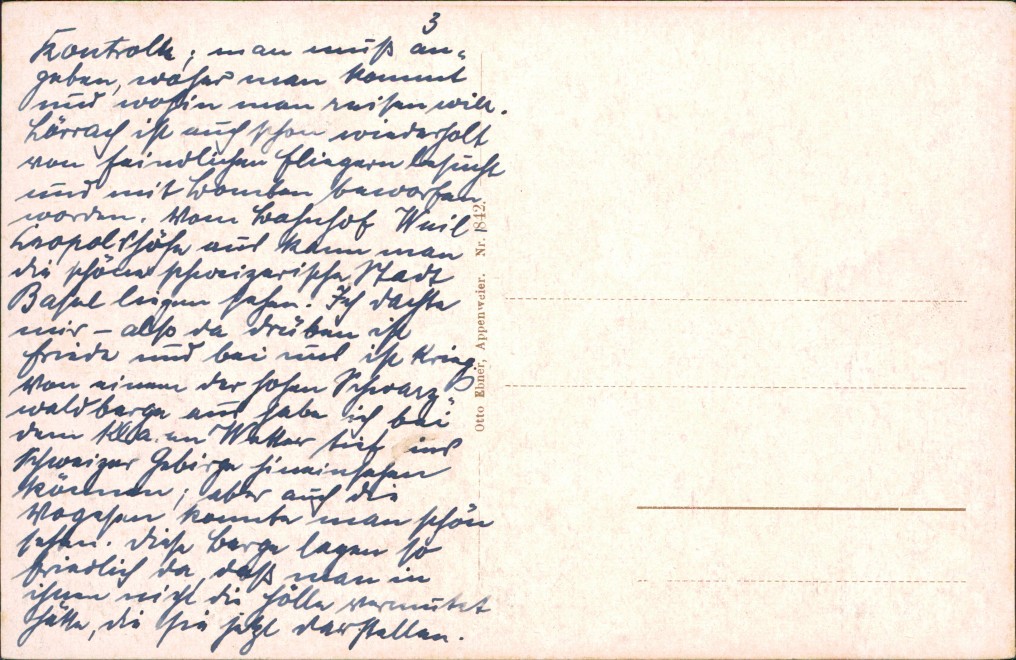 3
Kontrolle; man muß an-
geben, woher man kommt
und wohin man reisen will.
Lörrach ist auch schon wiederholt
von feindlichen Fliegern besucht
und mit Bomben beworfen
worden. Vom Bahnhof Weil
Leopoldshöhe aus kann man
die schöne schweizerische Stadt
Basel liegen sehen. Ich dachte
mir – also da drüben ist
Friede und bei uns ist Krieg.
Von einem der hohen Schwarz-
waldberge aus habe ich bei
dem klaren Wetter tief ins
Schweizer Gebirge hineinsehen
können; aber auch die
Vogesen konnte man schön
sehen. Diese Berge lagen so
friedlich da, daß man in
ihnen nicht die Hölle vermutet
hätte, die sie jetzt darstellen.
Otto Ebner, Appenweier. Nr. 1842.